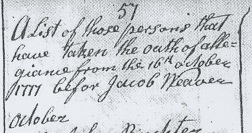 57
A List of those persons that
have taken the outh of alle-
giance from the 16th october
1777 befor Jacob Weaver
october